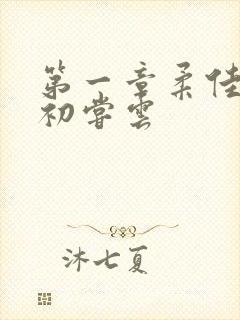 第一章柔佳
初尝云
沐七夏